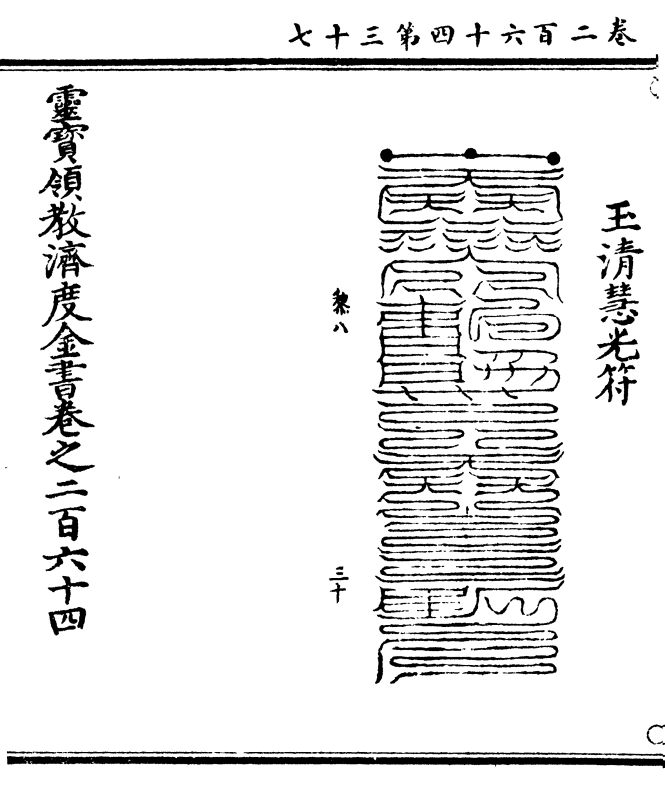 卷二百六十四第三十七
玉清慧光符
黎八
三十
靈寶領教濟度金書卷之二百六十四